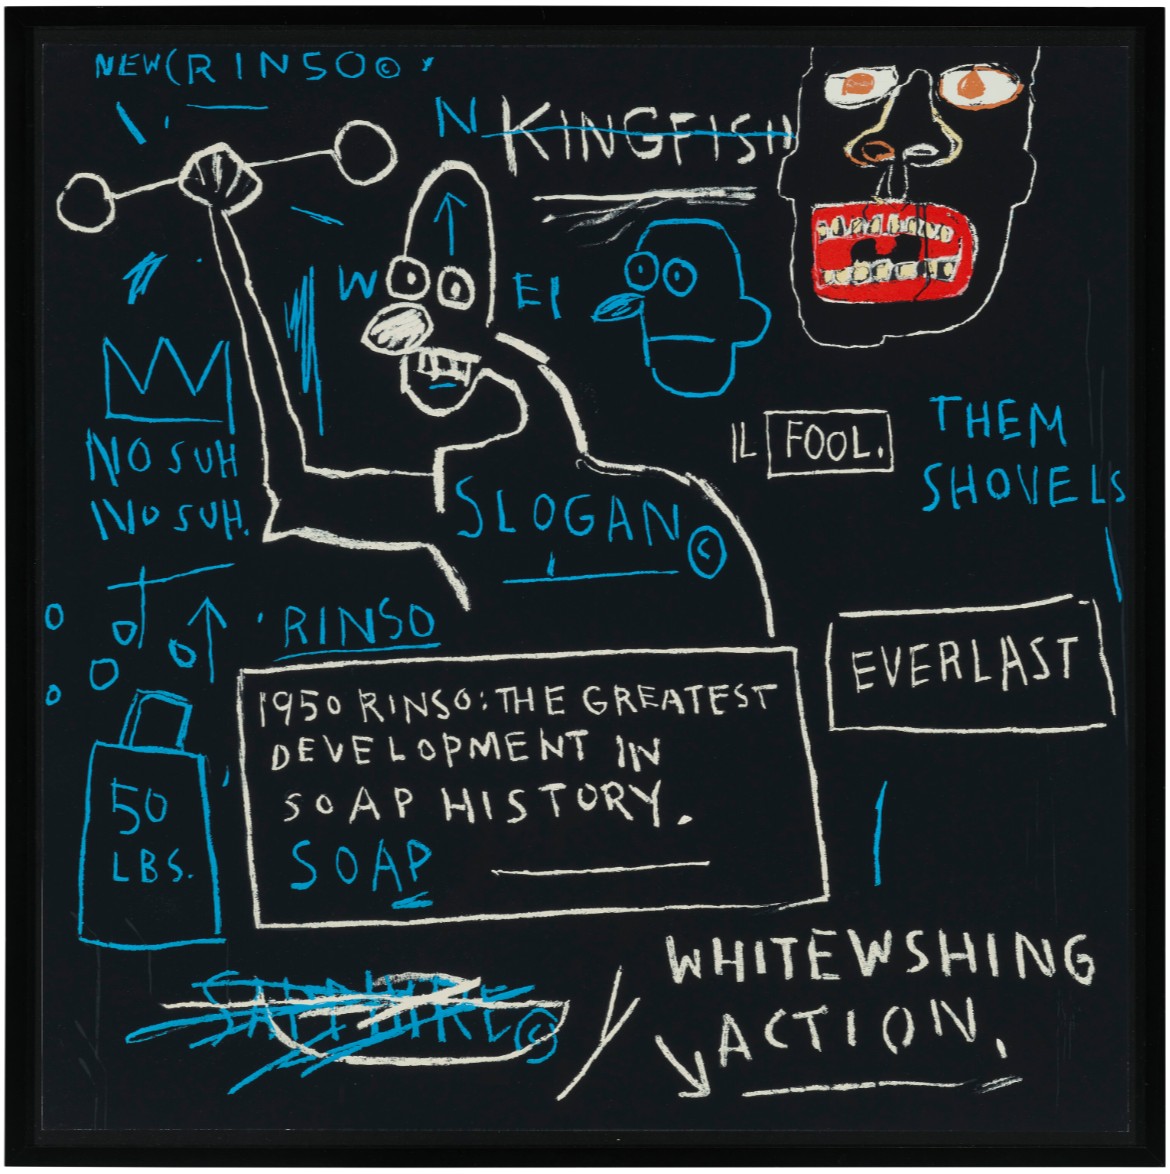 NEW(RINSO©
N KINGFISH
W EI
NO SUH
NO SUH.
IL FOOL.
THEM
SHOVELS
SLOGAN©
RINSO
EVERLAST
1950 RINSO: THE GREATEST
DEVELOPMENT IN
SOAP HISTORY.
SOAP
50
LBS.
WHITEWSHING
ACTION.
SAPPHIRE©